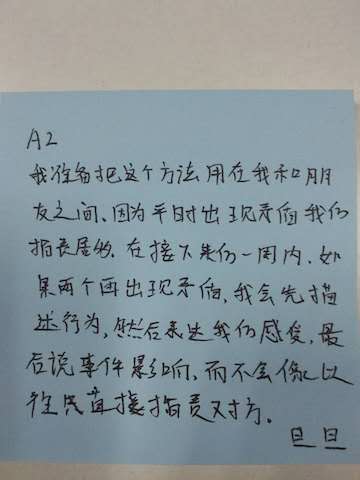 A2
我准备把这个方法用在我和朋
友之间、因为平时出现矛盾我们
指责居多、在接下来的一周内、如
果两个再出现矛盾，我会先描
述行为，然后表达我的感受，最
后说事件影响、而不会像以
往直接指责对方。
旦旦